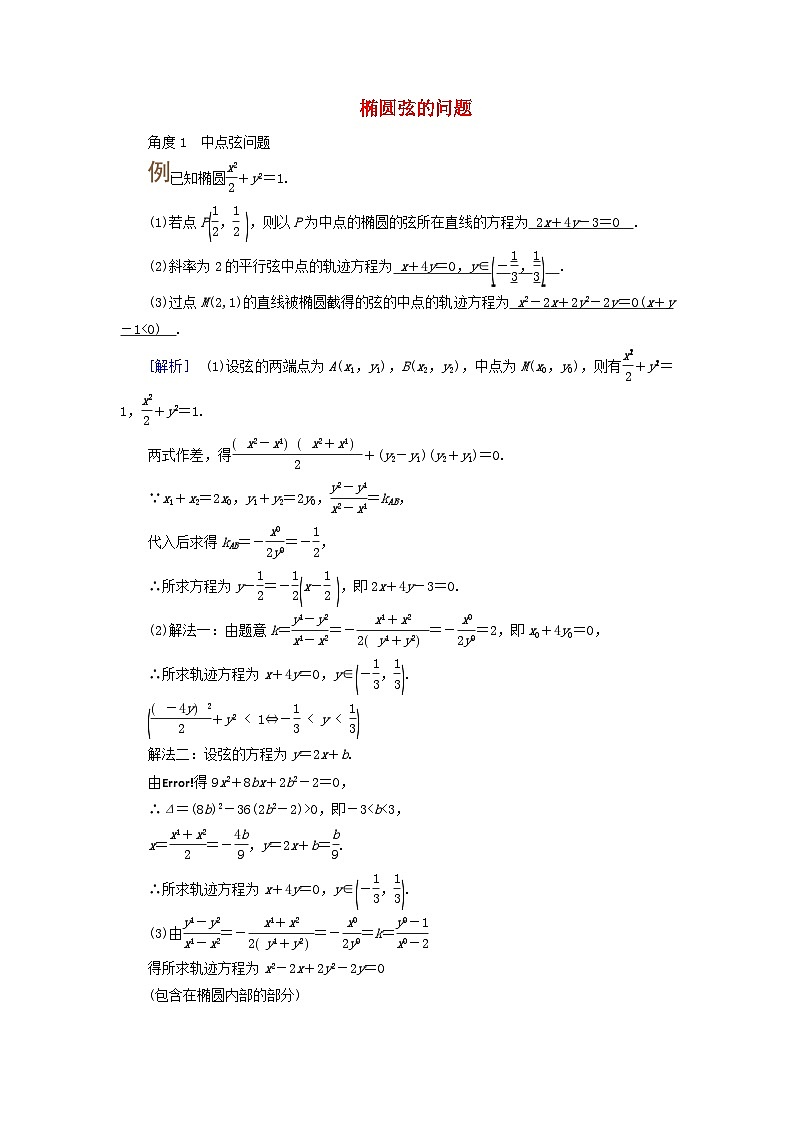 椭圆弦的问题
角度1 中点弦问题
例已知椭圆x²/2+y²=1.
(1)若点P(1/2，1/2)，则以P为中点的椭圆的弦所在直线的方程为 2x+4y-3=0 .
(2)斜率为2的平行弦中点的轨迹方程为 x+4y=0，y∈(-1/3，1/3) .
(3)过点M(2,1)的直线被椭圆截得的弦的中点的轨迹方程为 x²-2x+2y²-2y=0(x+y
-1<0) .
[解析] (1)设弦的两端点为A(x₁，y₁)，B(x₂，y₂)，中点为M(x₀，y₀)，则有x²/2+y²=
1，x²/2+y²=1.
两式作差，得( x²-x¹)( x²+x¹)/2+(y₂-y₁)(y₂+y₁)=0.
∵x₁+x₂=2x₀，y₁+y₂=2y₀，y²-y¹/x²-x¹=k_AB，
代入后求得k_AB=-x⁰/2y⁰=-1/2，
∴所求方程为y-1/2=-1/2(x-1/2)，即2x+4y-3=0.
(2)解法一：由题意k=y¹-y²/x¹-x²=-x¹+x²/2( y¹+y²)=-x⁰/2y⁰=2，即x₀+4y₀=0，
∴所求轨迹方程为x+4y=0，y∈(-1/3，1/3).
(( -4y) ²/2+y² < 1⇔-1/3 < y < 1/3)
解法二：设弦的方程为y=2x+b.
由Error!得9x²+8bx+2b²-2=0，
∴Δ=(8b)²-36(2b²-2)>0，即-3<b<3，
x=x¹+x²/2=-4b/9，y=2x+b=b/9.
∴所求轨迹方程为x+4y=0，y∈(-1/3，1/3).
(3)由y¹-y²/x¹-x²=-x¹+x²/2( y¹+y²)=-x⁰/2y⁰=k=y⁰-1/x⁰-2
得所求轨迹方程为x²-2x+2y²-2y=0
(包含在椭圆内部的部分)